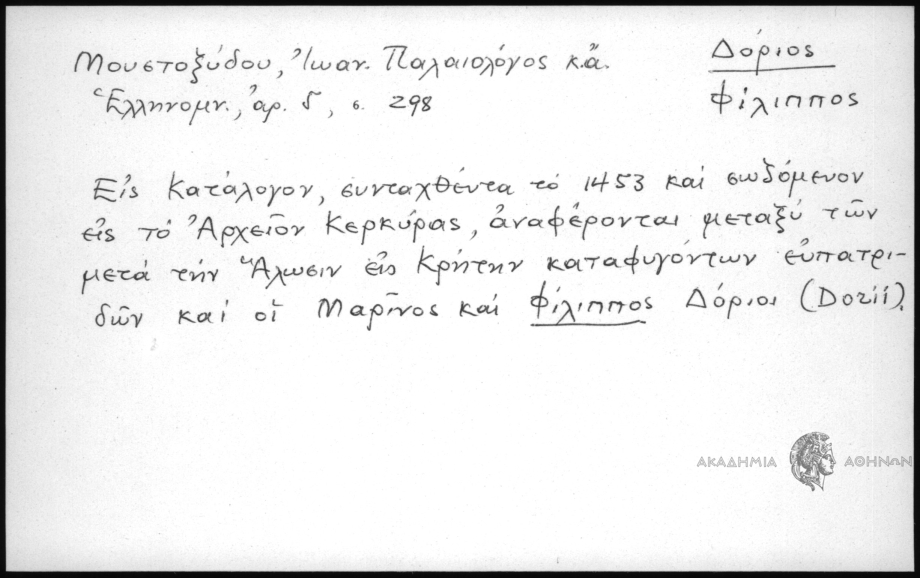 Μουστοξύδου, Ἰωαν. Παλαιολόγος κ.ἄ.
Ἑλληνομν., ἀρ. 5, σ. 298
Δόριος
Φίλιππος
Εἰς Κατάλογον, συνταχθέντα τό 1453 καί σωζόμενον
εἰς τό Ἀρχεῖον Κερκύρας, ἀναφέρονται μεταξύ τῶν
μετά τήν Ἅλωσιν εἰς Κρήτην καταφυγόντων εὐπατρι-
δῶν καί οἱ Μαρῖνος καί Φίλιππος Δόριοι (Dorii).
ΑΚΑΔΗΜΙΑ ΑΘΗΝΩΝ